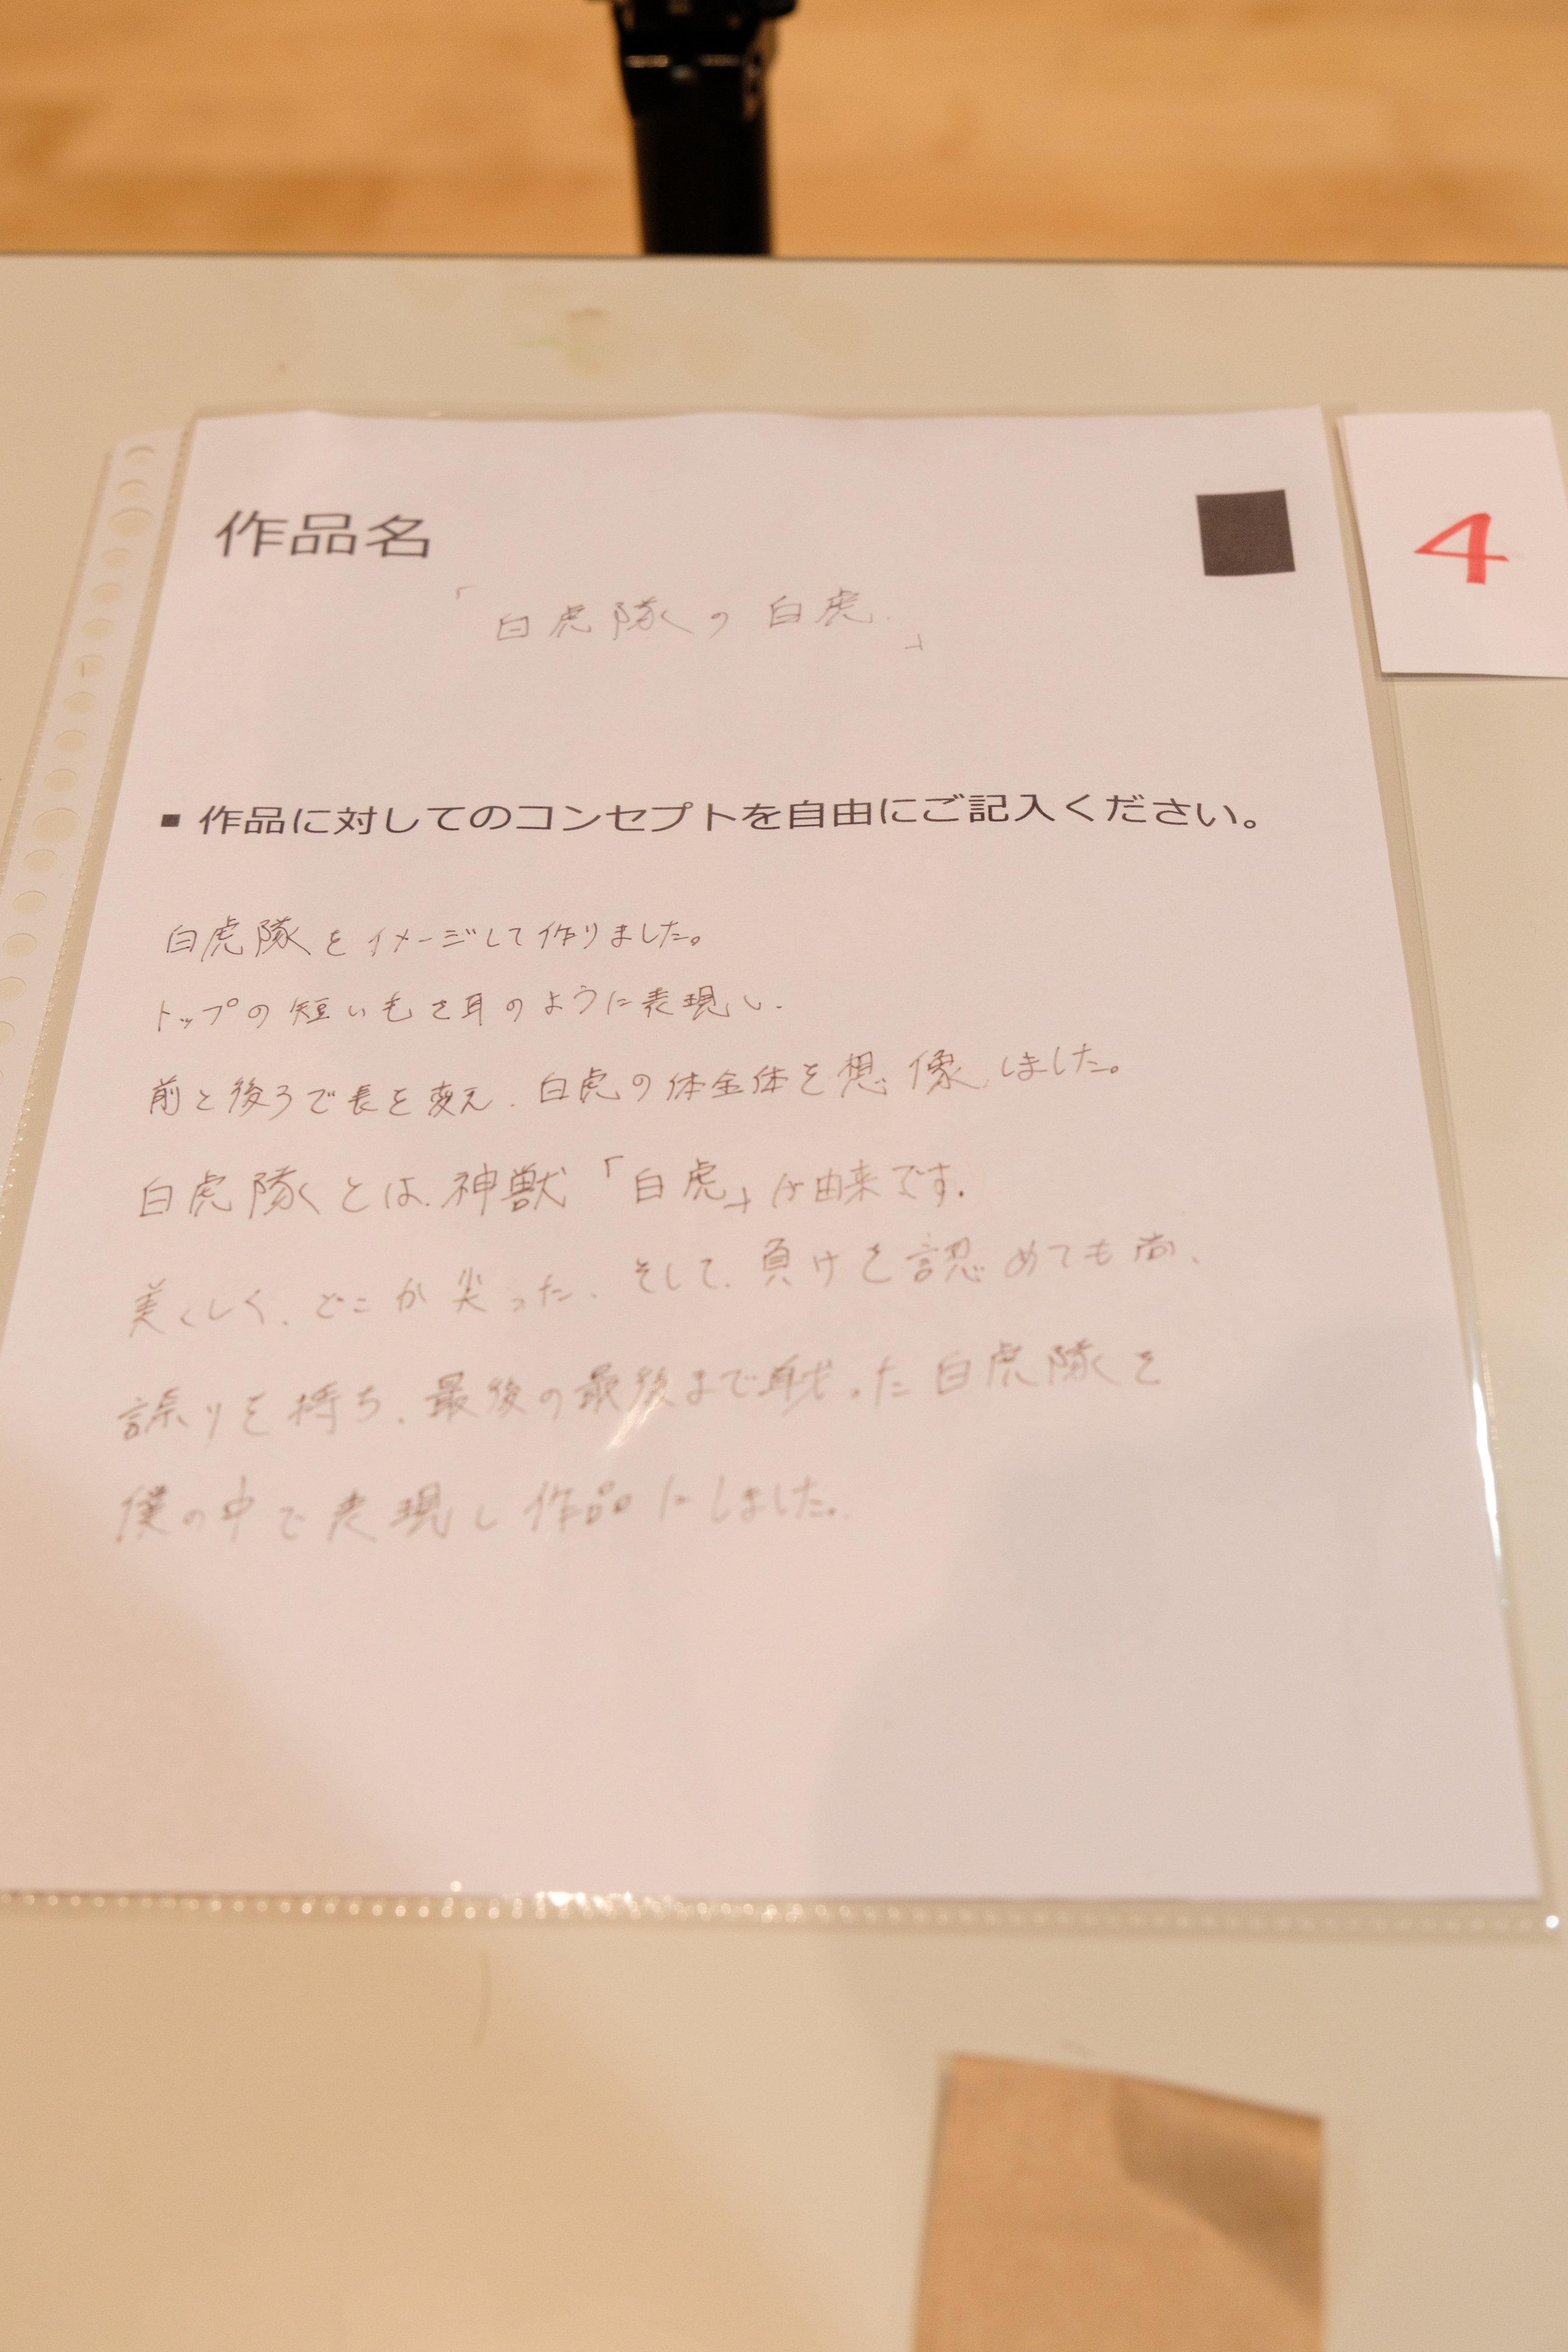 作品名
4
「白虎隊の白虎.」
■ 作品に対してのコンセプトを自由にご記入ください。
白虎隊をイメージして作りました。
トップの短い毛を耳のように表現し、
前と後ろで長を変え、白虎の体全体を想像しました。
白虎隊とは、神獣「白虎」が由来です。
美くしく、どこか尖った、そして、負けを認めても尚、
誇りを持ち、最後の最後まで戦った白虎隊を
僕の中で表現し作品にしました。